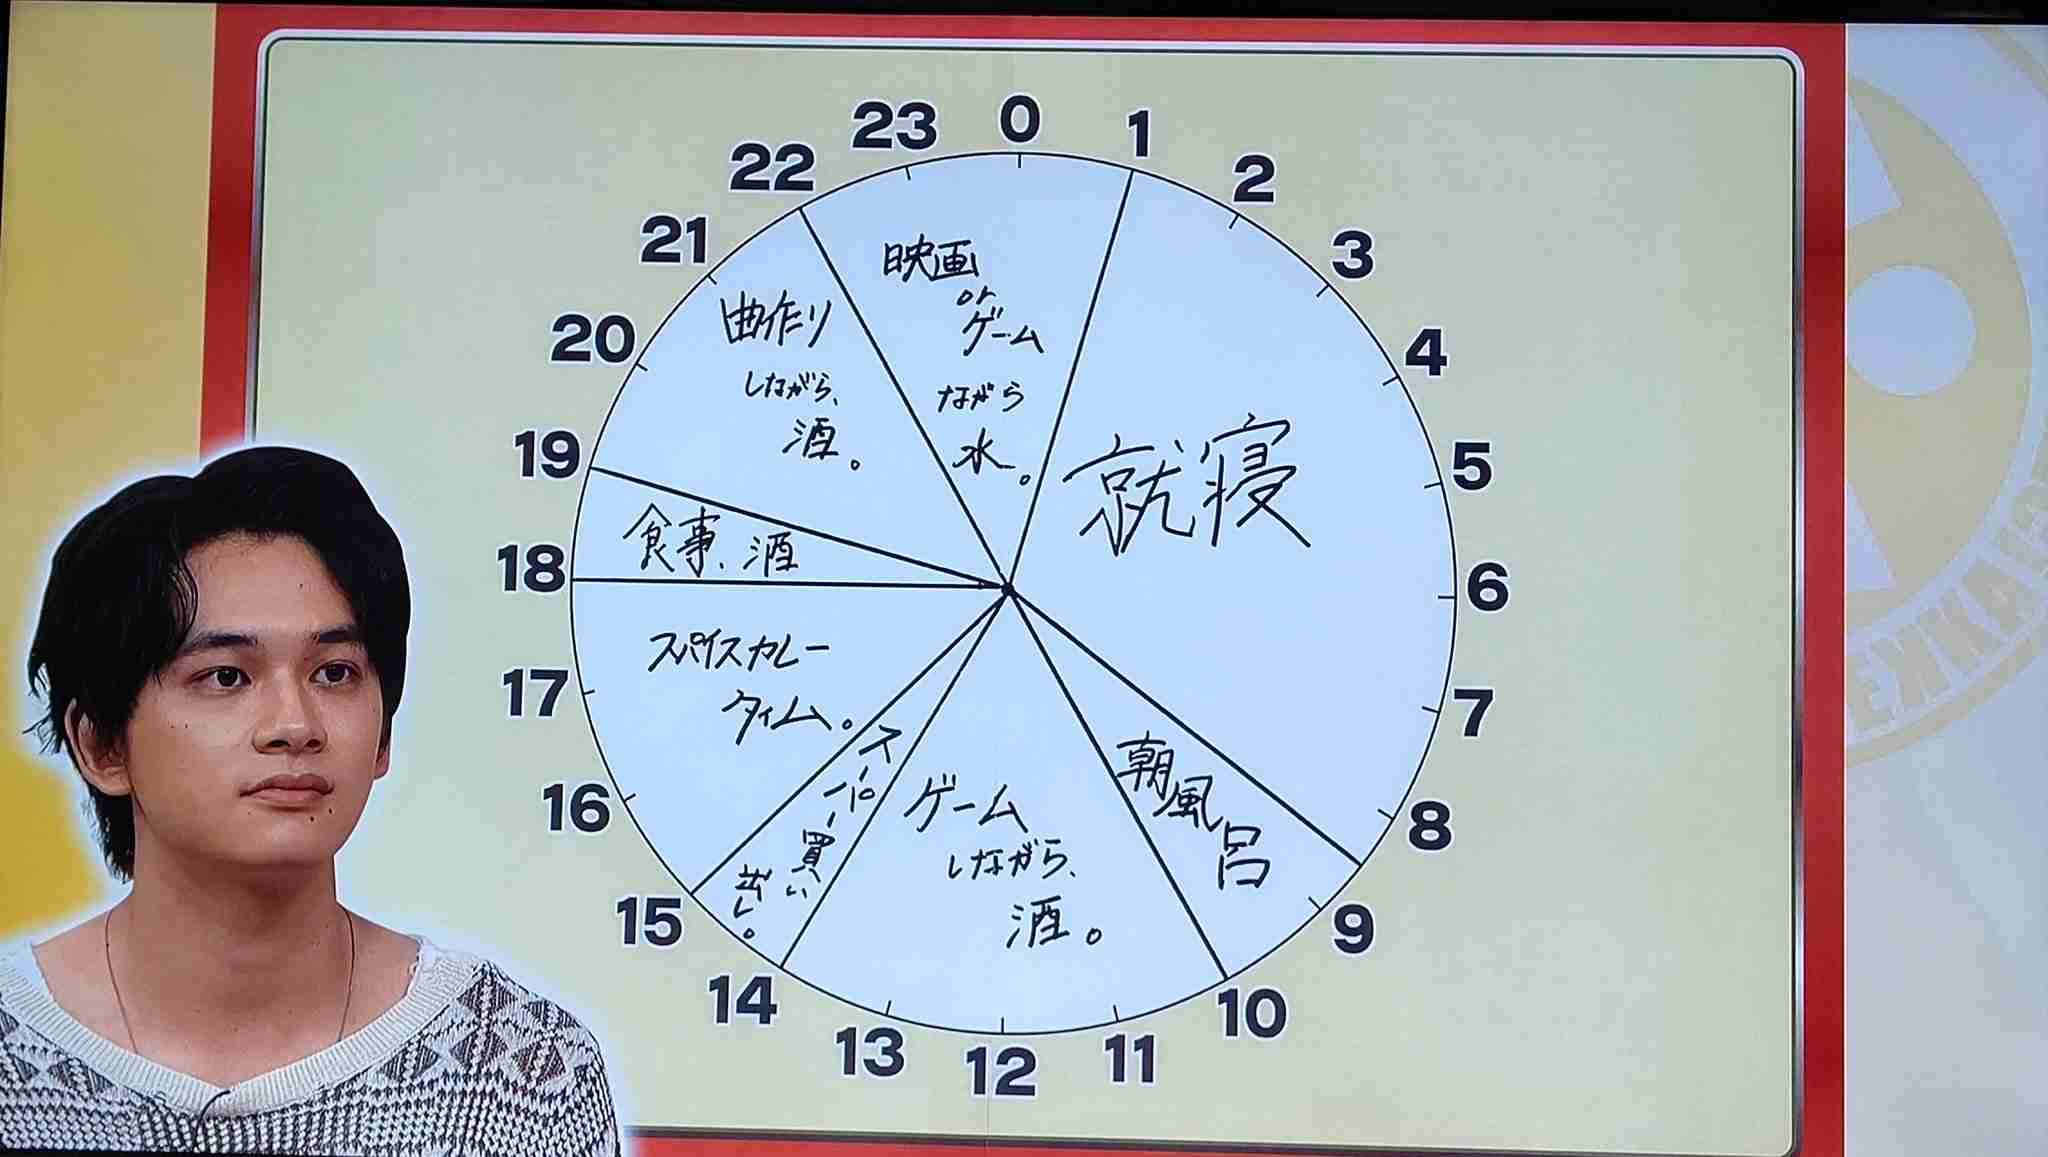 0
1
2
3
4
5
6
7
8
9
10
11
12
13
14
15
16
17
18
19
20
21
22
23
就寝
朝風呂
ゲーム
しながら、
酒。
スーパー買い
出し。
スパイスカレー
タイム。
食事、酒
曲作り
しながら、
酒。
映画
or
ゲーム
ながら
水。